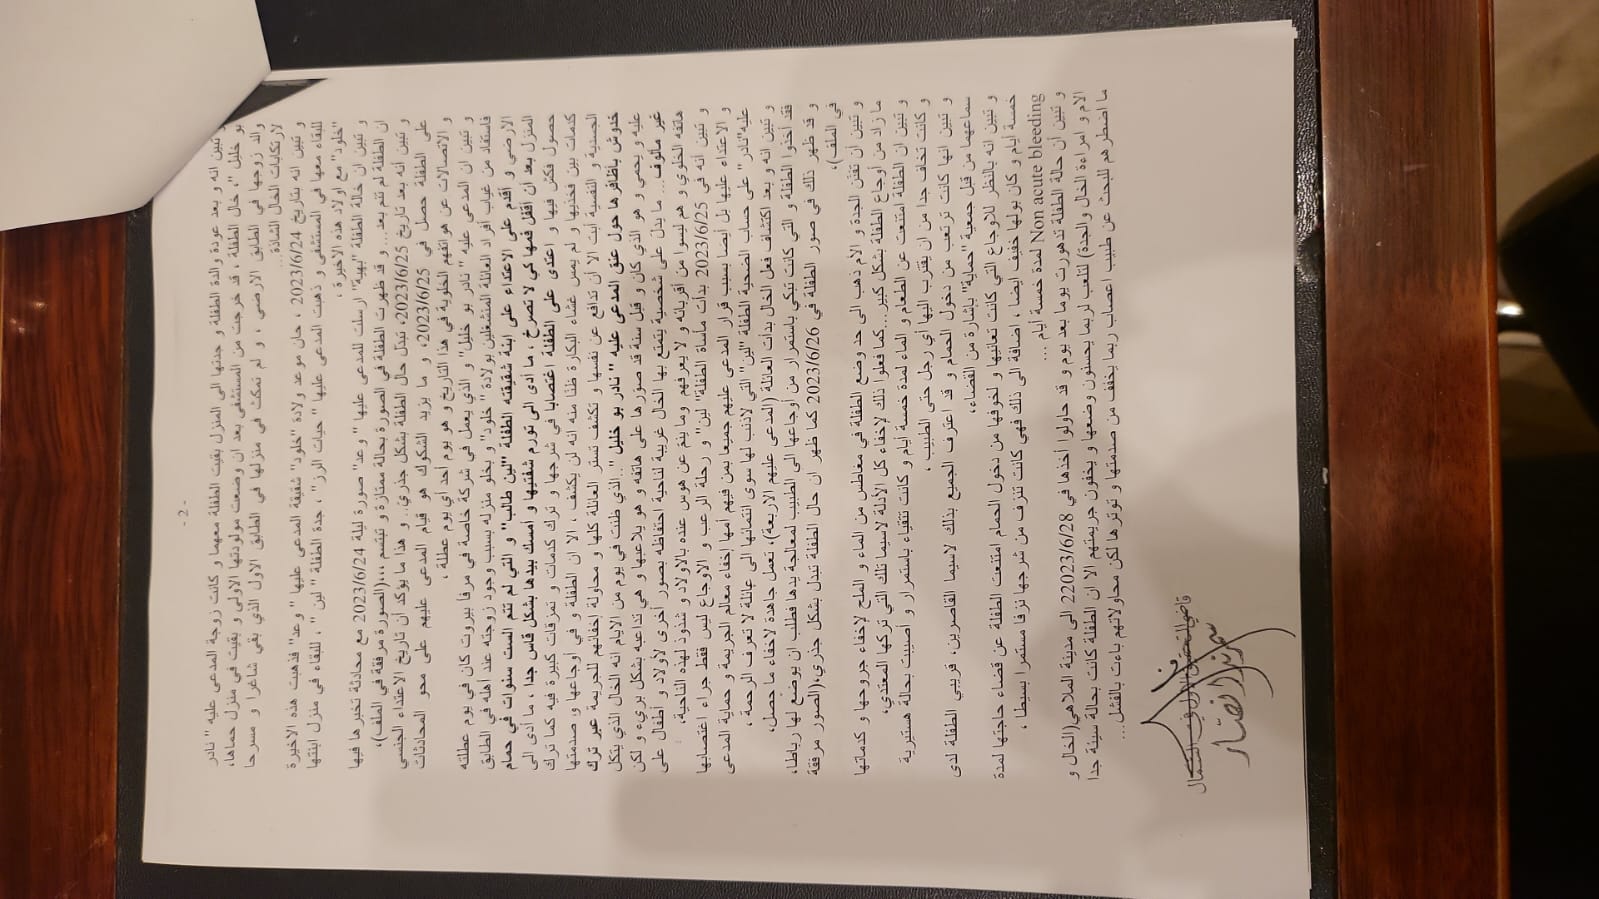 - 2 -
و تبين انه و بعد عودة والدة الطفلة و جدتها الى المنزل بقيت الطفلة معهما و كانت زوجة المدعى عليه "نادر
بو خليل"، خال الطفلة، قد خرجت من المستشفى بعد ان وضعت مولودتها الاولى و بقيت في منزل حماها،
والد زوجها في الطابق الارضي، و لم تمكث في منزلها في الطابق الاول الذي بقي شاغرا و مسرحا
لارتكابات الخال الشاذة...
و تبين انه بتاريخ 2023/6/24، حان موعد ولادة "خلود" شقيقة المدعى عليها "وعد" فذهبت هذه الاخيرة
للبقاء معها في المستشفى و ذهبت المدعى عليها "حيات الرز"، جدة الطفلة "لين"، للبقاء في منزل ابنتها
"خلود" مع اولاد هذه الاخيرة،
و تبين ان حالة الطفلة "بهية" ارسلت للمدعى عليها "وعد" صورة ليلة 2023/6/24 مع محادثة تخبرها فيها
ان الطفلة لم تنم بعد... و قد ظهرت الطفلة في الصورة بحالة ممتازة و تبتسم،،،(الصورة مرفقة في الملف)،
و تبين أنه بعد تاريخ 2023/6/25، تبدّل حال الطفلة بشكل جذري.. و هذا ما يؤكد أن تاريخ الاعتداء الجنسي
على الطفلة حصل في 2023/6/25، و ما يزيد الشكوك هو قيام المدعى عليهم على محو المحادثات
و الاتصالات عن هواتفهم الخلوية في هذا التاريخ و هو يوم أحد أي يوم عطلة،
و تبين ان المدعى عليه "نادر بو خليل" و الذي يعمل في شركة خاصة في مرفأ بيروت كان في يوم عطلته
فاستفاد من غياب أفراد العائلة المنشغلين بولادة "خلود" و بخلو منزله بسبب وجود زوجته عند أهله في الطابق
الارضي و أقدم على الاعتداء على ابنة شقيقته الطفلة "لين طالب" و التي لم تتم الست سنوات في حمام
المنزل بعد أن أقفل فمها كي لا تصرخ، ما أدى الى تورم شفتيها و أمسك بيدها بشكل قاس جدا، ما أدى الى
حصول فكش فيها و اعتدى على الطفلة اغتصابا في شرجها و ترك كدمات و تمزقات كبيرة فيه كما ترك
كدمات بين فخذيها و لم يمس غشاء البكارة ظنا منه انه لن يكشف، الا ان الطفلة و في أوجاعها و صدمتها
الجسدية و النفسية أبت الا أن تدافع عن نفسها و تكشف تستر العائلة كلها و محاولة اخفائهم للجريمة عبر ترك
خدوش بأظافرها حول عنق المدعى عليه "نادر بو خليل"...الذي ظنت في يوم من الايام انه الخال الذي يتكل
عليه و يحمي و هو الذي كان و قبل سنة قد صورها على هاتفه و هو يلاعبها و هي تداعبه بشكل بريء و لكن
غير مألوف... ما يدل على شخصية يتمتع بها الخال غريبة لناحية احتفاظه بصور أخرى لأولاد و اطفال على
هاتفه الخلوي و هم ليسوا من أقربائه و لا يعرفهم وما ينم عن هوس عنده بالاولاد و شذوذ لهذه الناحية،
و تبين أنه في 2023/6/25 بدأت مأساة الطفلة "لين" و رحلة الرعب و الاوجاع ليس فقط جراء اغتصابها
و الاعتداء عليها بل أيضا بسبب قرار المدعى عليهم جميعا بمن فيهم أمها إخفاء معالم الجريمة و حماية المدعى
عليه "نادر" على حساب الضحية الطفلة "لين" التي لاذنب لها سوى انتمائها الى عائلة لا تعرف الرحمة،
و تبين انه و بعد اكتشاف فعل الخال بدأت العائلة (المدعى عليهم الاربعة)، تعمل جاهدة لاخفاء ما حصل،
فقد أخذوا الطفلة و التي كانت تبكي باستمرار من أوجاعها الى الطبيب لمعالجة يدها فطلب ان يوضع لها رباطا،
و قد ظهر ذلك في صور الطفلة في 2023/6/26 كما ظهر ان حال الطفلة تبدل بشكل جذري،(الصور مرفقة
في الملف)،
و تبين أن تفنن الجدة و الأم ذهب الى حد وضع الطفلة في مغاطس من الماء و الملح لإخفاء جروحها و كدماتها
ما زاد من أوجاع الطفلة بشكل كبير...كما فعلوا ذلك لإخفاء كل الأدلة لاسيما تلك التي تركها المعتدي،
و تبين ان الطفلة امتنعت عن الطعام و الماء لمدة خمسة ايام و كانت تتقياء باستمرار و أصيبت بحالة هستيرية
و كانت تخاف جدا من ان يقترب اليها اي رجل حتى الطبيب،
و تبين انها كانت ترتعب من دخول الحمام و قد اعترف الجميع بذلك لاسيما القاصرين، قريبي الطفلة لدى
سماعهما من قبل جمعية "حماية" بإشارة من القضاء،
و تبين انه بالنظر للاوجاع التي كانت تعانيها و لخوفها من دخول الحمام امتنعت الطفلة عن قضاء حاجتها لمدة
خمسة أيام و كان بولها خفيف ايضا، اضافة الى ذلك فهي كانت تنزف من شرجها نزفا مستمرا بسيطا،
Non acute bleeding لمدة خمسة أيام...
و تبين أن حالة الطفلة تدهورت يوما بعد يوم و قد حاولوا أخذها في 22023/6/28 الى مدينة الملاهي(الخال و
الام و امراءة الخال والجدة) لتلعب لربما يحسنون وضعها و يخفون جريمتهم الا ان الطفلة كانت بحالة سيئة جدا
ما اضطرهم للبحث عن طبيب اعصاب ربما يخفف من صدمتها و توترها لكن محاولاتهم باءت بالفشل...
قاضي التحقيق الاول في الشمال
سمرندا نصار